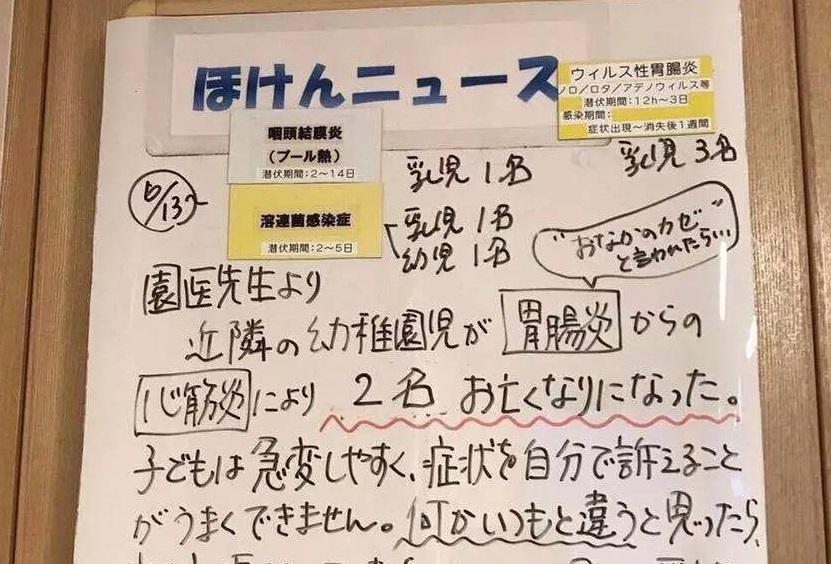 ほけんニュース
ウィルス性胃腸炎
ノロ/ロタ/アデノウィルス等
潜伏期間:12h〜3日
感染期間:
症状出現〜消失後1週間
乳児 3名
咽頭結膜炎
(プール熱)
潜伏期間:2〜14日
乳児 1名
6/13〜
溶連菌感染症
潜伏期間:2〜5日
乳児 1名
幼児 1名
"おなかのカゼ"
と言われたら…
園医先生より
近隣の幼稚園児が 胃腸炎 からの
心筋炎 により 2名 お亡くなりになった。
子どもは急変しやすく、症状を自分で訴えること
がうまくできません。何かいつもと違うと思ったら、